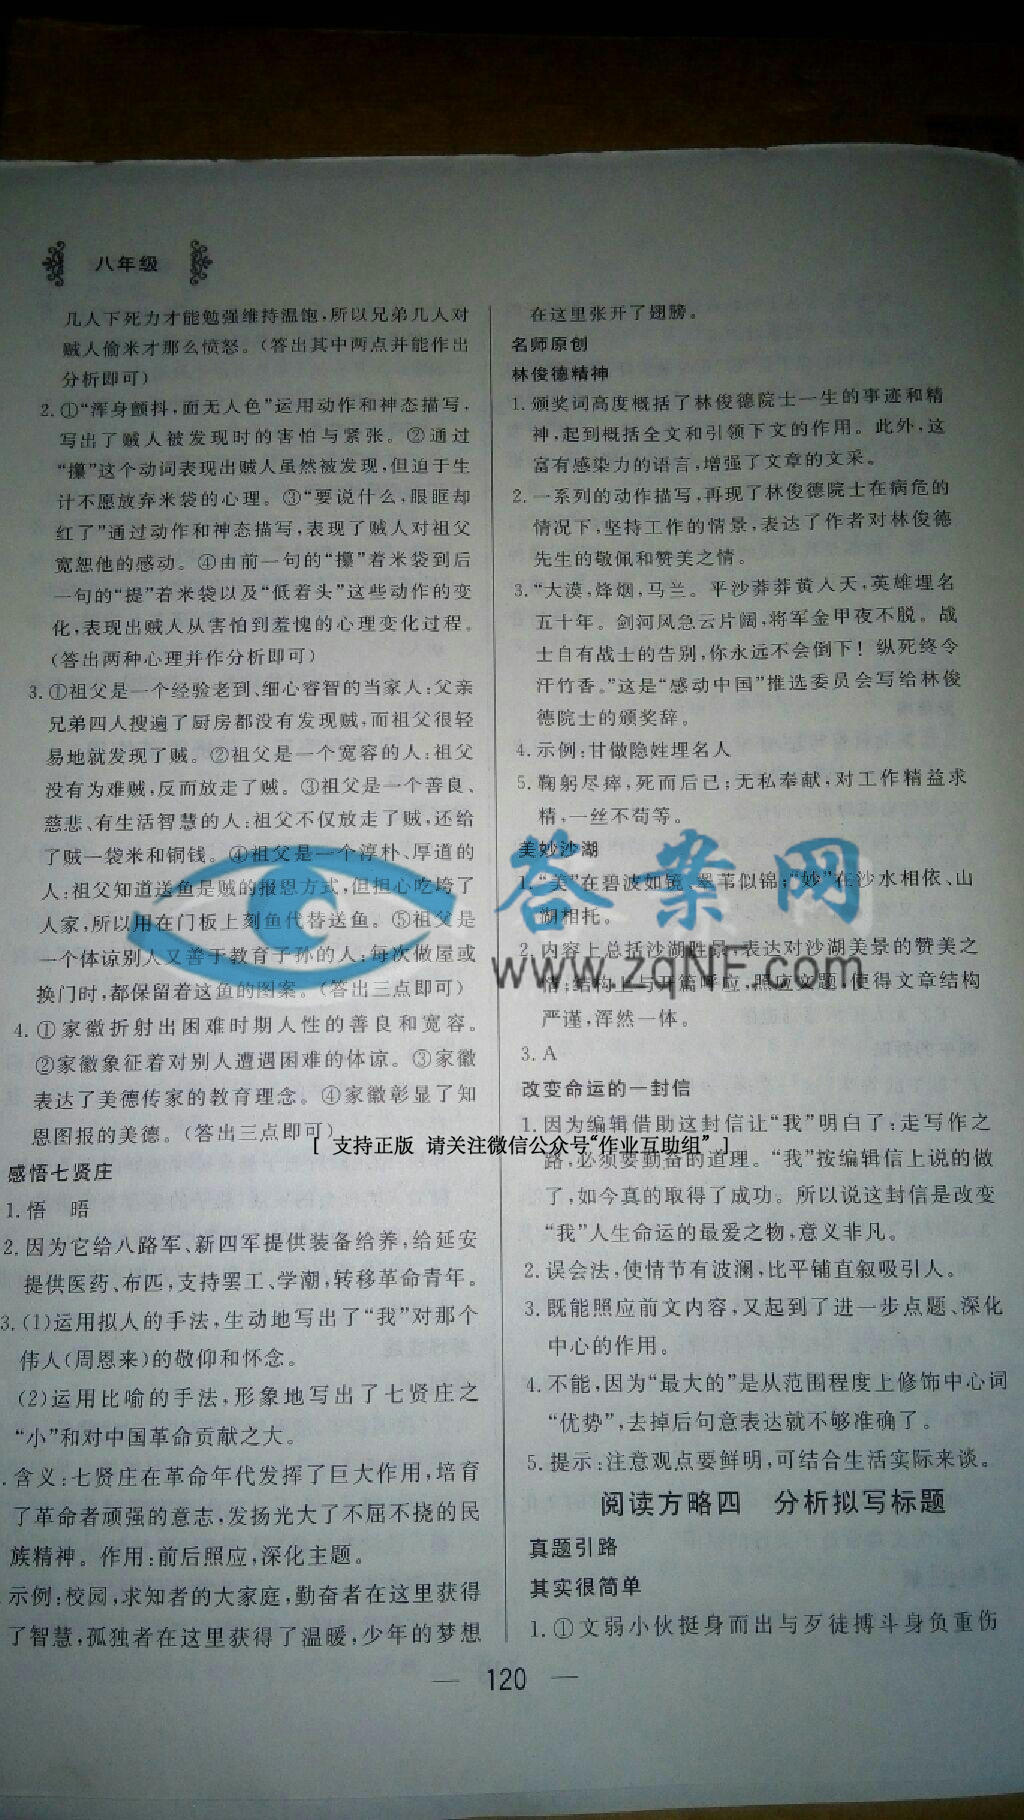 八年级
几人下死力才能勉强维持温饱,所以兄弟几人对
贼人偷米才那么愤怒。(答出其中两点并能作出
分析即可)
2.①“浑身颤抖,面无人色”运用动作和神态描写,
写出了贼人被发现时的害怕与紧张。②通过
“攥”这个动词表现出贼人虽然被发现,但迫于生
计不愿放弃米袋的心理。③“要说什么,眼眶却
红了”通过动作和神态描写,表现了贼人对祖父
宽恕他的感动。④由前一句的“攥”着米袋到后
一句的“提”着米袋以及“低着头”这些动作的变
化,表现出贼人从害怕到羞愧的心理变化过程。
(答出两种心理并作分析即可)
3.①祖父是一个经验老到、细心睿智的当家人:父亲
兄弟四人搜遍了厨房都没有发现贼,而祖父很轻
易地就发现了贼。②祖父是一个宽容的人:祖父
没有为难贼,反而放走了贼。③祖父是一个善良、
慈悲、有生活智慧的人:祖父不仅放走了贼,还给
了贼一袋米和铜钱。④祖父是一个淳朴、厚道的
人:祖父知道送鱼是贼的报恩方式,但担心吃垮了
人家,所以用在门板上刻鱼代替送鱼。⑤祖父是
一个体谅别人又善于教育子孙的人:每次做屋或
换门时,都保留着这鱼的图案。(答出三点即可)
4.①家徽折射出困难时期人性的善良和宽容。
②家徽象征着对别人遭遇困难的体谅。③家徽
表达了美德传家的教育理念。④家徽彰显了知
恩图报的美德。(答出三点即可)
感悟七贤庄
1.悟 晤
2.因为它给八路军、新四军提供装备给养,给延安
提供医药、布匹,支持罢工、学潮,转移革命青年。
3.(1)运用拟人的手法,生动地写出了“我”对那个
伟人(周恩来)的敬仰和怀念。
(2)运用比喻的手法,形象地写出了七贤庄之
“小”和对中国革命贡献之大。
.含义:七贤庄在革命年代发挥了巨大作用,培育
了革命者顽强的意志,发扬光大了不屈不挠的民
族精神。作用:前后照应,深化主题。
示例:校园,求知者的大家庭,勤奋者在这里获得
了智慧,孤独者在这里获得了温暖,少年的梦想
在这里张开了翅膀。
名师原创
林俊德精神
1.颁奖词高度概括了林俊德院士一生的事迹和精
神,起到概括全文和引领下文的作用。此外,这
富有感染力的语言,增强了文章的文采。
2.一系列的动作描写,再现了林俊德院士在病危的
情况下,坚持工作的情景,表达了作者对林俊德
先生的敬佩和赞美之情。
3.“大漠,烽烟,马兰。平沙莽莽黄入天,英雄埋名
五十年。剑河风急云片阔,将军金甲夜不脱。战
士自有战士的告别,你永远不会倒下!纵死终令
汗竹香。”这是“感动中国”推选委员会写给林俊
德院士的颁奖辞。
4.示例:甘做隐姓埋名人
5.鞠躬尽瘁,死而后已;无私奉献,对工作精益求
精,一丝不苟等。
美妙沙湖
1.“美”在碧波如镜、翠苇似锦;“妙”在沙水相依、山
湖相托。
2.内容上总括沙湖胜景,表达对沙湖美景的赞美之
情;结构上与开篇呼应,照应文题,使得文章结构
严谨,浑然一体。
3.A
改变命运的一封信
1.因为编辑借助这封信让“我”明白了:走写作之
路,必须要勤奋的道理。“我”按编辑信上说的做
了,如今真的取得了成功。所以说这封信是改变
“我”人生命运的最爱之物,意义非凡。
2.误会法,使情节有波澜,比平铺直叙吸引人。
3.既能照应前文内容,又起到了进一步点题、深化
中心的作用。
4.不能,因为“最大的”是从范围程度上修饰中心词
“优势”,去掉后句意表达就不够准确了。
5.提示:注意观点要鲜明,可结合生活实际来谈。
阅读方略四 分析拟写标题
真题引路
其实很简单
1.①文弱小伙挺身而出与歹徒搏斗身负重伤
— 120 —
答案网
www.zqNF.com
[ 支持正版 请关注微信公众号“作业互助组” ]